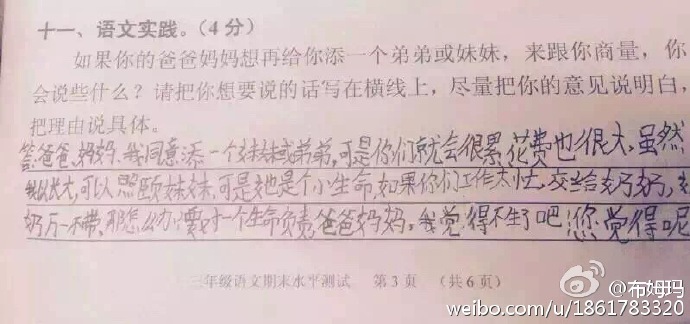 十一、语文实践。(4分)
如果你的爸爸妈妈想再给你添一个弟弟或妹妹，来跟你商量，你
会说些什么？请把你想要说的话写在横线上，尽量把你的意见说明白，
把理由说具体。
答:爸爸、妈妈、我同意添一个妹妹或弟弟,可是你们就会很累,花费也很大,虽然
我以长大,可以照顾妹妹,可是她是个小生命,如果你们工作太忙,交给奶奶,
奶万一不带,那怎么办,要对一个生命负责爸爸妈妈,我觉得不生了吧!您觉得呢
三年级语文期末水平测试 第3页 (共6页)
@布姆玛
weibo.com/u/1861783320